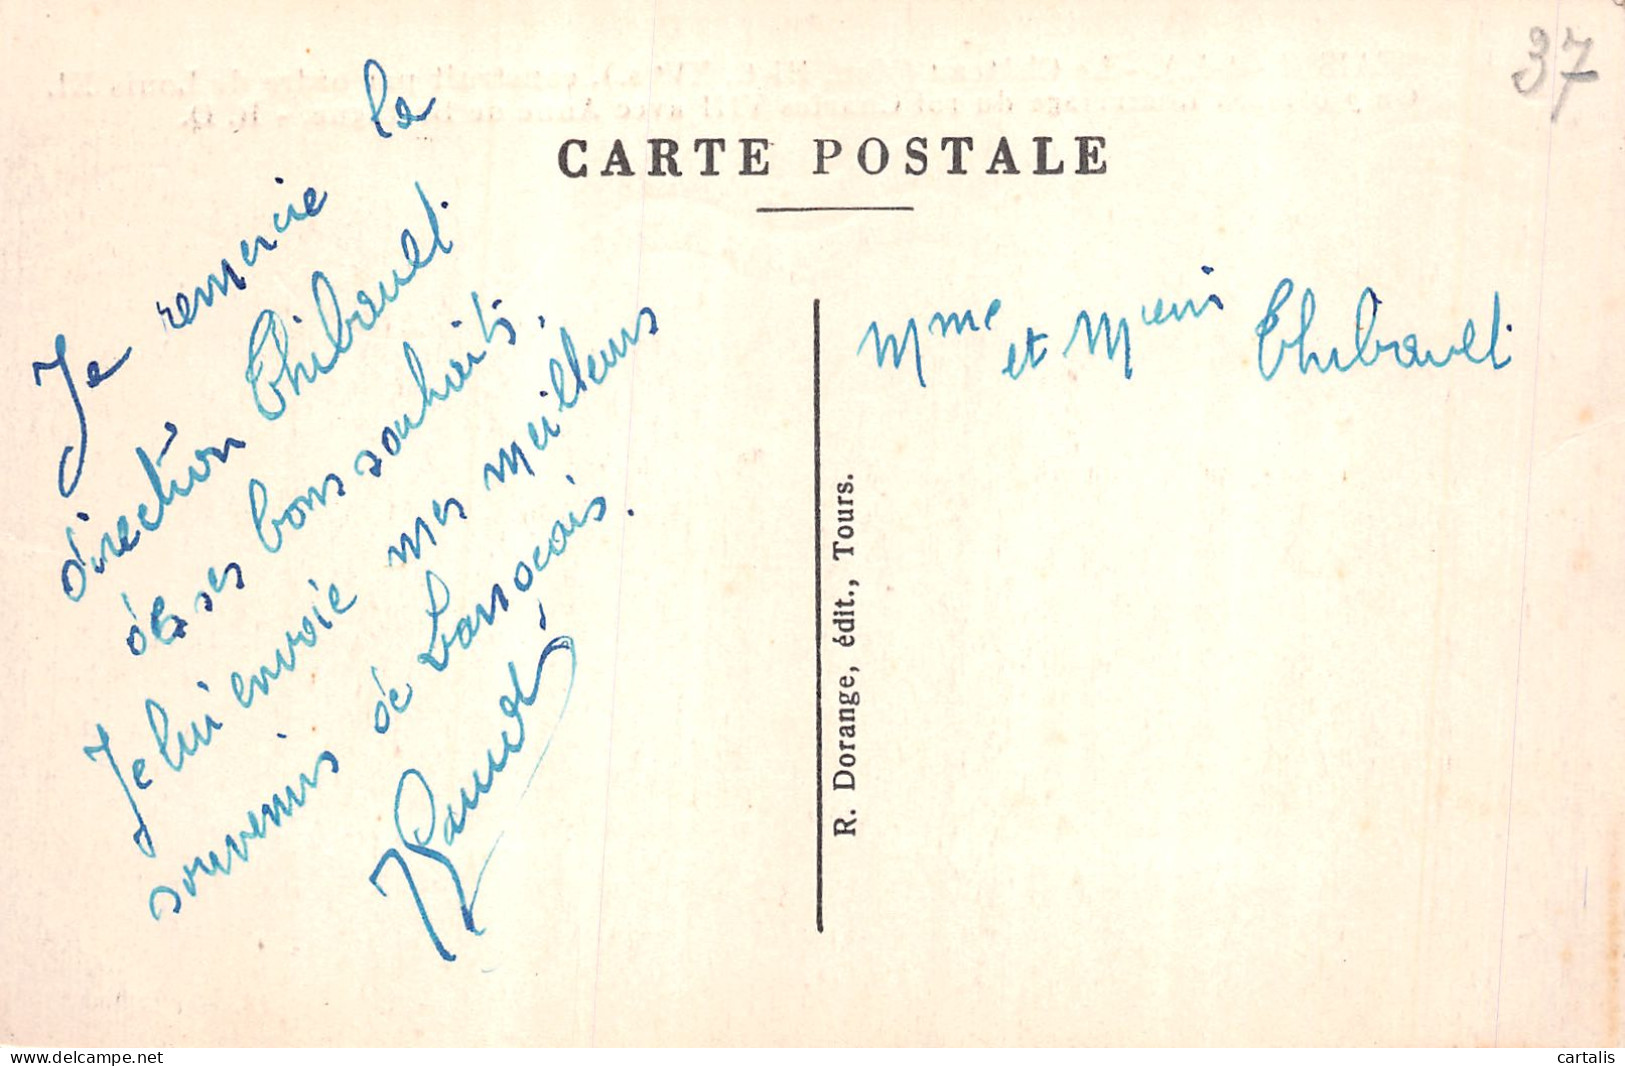 37
CARTE POSTALE
Je remercie la
direction Thibault
de ses bons souhaits.
Je lui envoie mes meilleurs
souvenirs de
Mme et Thibault
R. Dorange, édit., Tours.
delcampe.net
cartalis